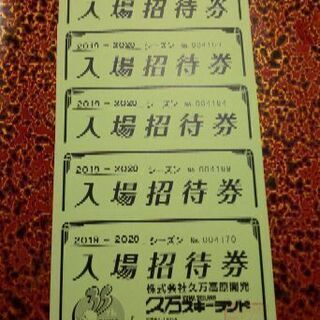 入場招待券
2019-2020 シーズン No.
入場招待券
2019-2020 シーズン No.
入場招待券
2019-2020 シーズン No.
入場招待券
2019-2020 シーズン No. 004170
入場招待券
株式会社久万高原開発
久万スキーランド